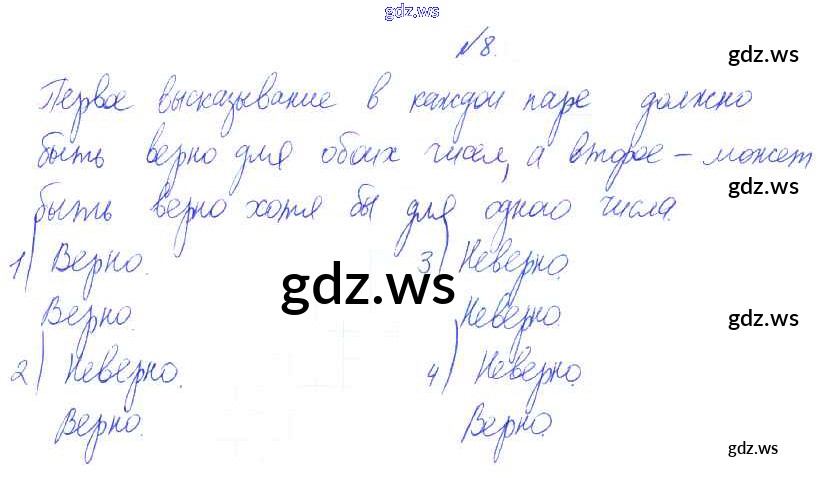 gdz.ws
№8.
gdz.ws
Первое высказывание в каждой паре должно
быть верно для обоих чисел, а второе – может
gdz.ws
быть верно хотя бы для одного числа.
1) Верно.
Верно.
3) Неверно.
Неверно.
gdz.ws
gdz.ws
2) Неверно.
Верно.
4) Неверно.
Верно.
gdz.ws